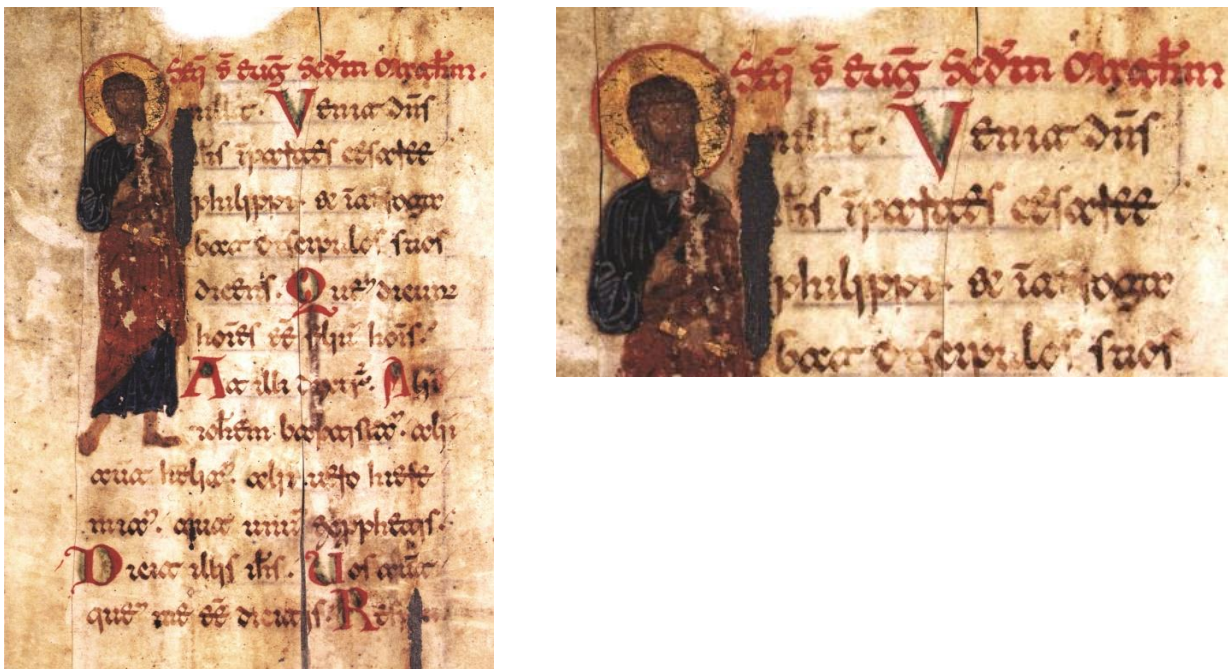 Seq̄ s̄ eug̅ Scd̄m Matħm.
illo t. Venit dn̄s
ih̄s ī partes cesaree
philippi. & īterroga
bat discipulos suos
dicens. Quē dicunt
hom̄s eē filiū hom̄s.
At illi dixer̄. Alii
ioh̄em baptistā. alii
aūt heliā. alii uero hiere
miā. aut unū ex pphetis.
Dicit illis ih̄s. Uos aūt
quē me eē dicitis. Resp
Seq̄ s̄ eug̅ Scd̄m Matħm
illo t. Venit dn̄s
ih̄s ī partes cesaree
philippi. & īterroga
bat discipulos suos